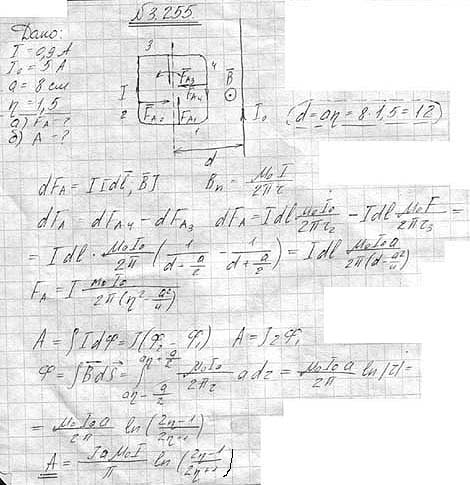 №3.255.
Дано:
I = 0,9 A
I₀ = 5 A
a = 8 см
η = 1,5
а) F_A - ?
б) A - ?
3
4
I
F_A3
F_A4
B̄
2
F_A2
F_A1
1
I₀
d
(d = aη = 8·1,5 = 12)
dF_A = I[dl̄, B̄] B_n = μ₀I / 2πr
dF_A = dF_A4 - dF_A3 dF_A = I dl μ₀I₀ / 2πr₂ - I dl μ₀I / 2πr₃ =
= I dl · μ₀I₀ / 2π (1 / (d - a/2) - 1 / (d + a/2)) = I dl μ₀I₀a / 2π(d - a²/4)
F_A = I μ₀I₀ / 2π(η² - a²/4)
A = ∫I dФ = I(Ф₂ - Ф₁) A = I2Ф₁
Ф = ∫B̄dS̄ = ∫_{aη - a/2}^{aη + a/2} μ₀I₀ / 2πr a dr = μ₀I₀a / 2π ln|r| =
= μ₀I₀a / 2π ln(2η-1 / 2η+1)
A = Iaμ₀I / π ln(2η-1 / 2η+1)